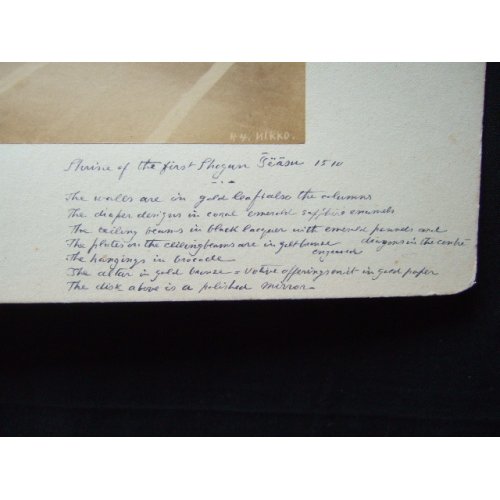 44. NIKKO.
Shrine of the first Shogun Īëāsu 1510
The walls are in gold leaf also the columns
The diaper designs in coral emerald sapphire enamels
The ceiling beams in black lacquer with emerald pannels and
dragons in the centre
The plates on the ceiling beams are in gilt bronze
engraved
The hangings in brocade
The altar in gold bronze = votive offerings on it in gold paper
The disk above is a polished mirror—